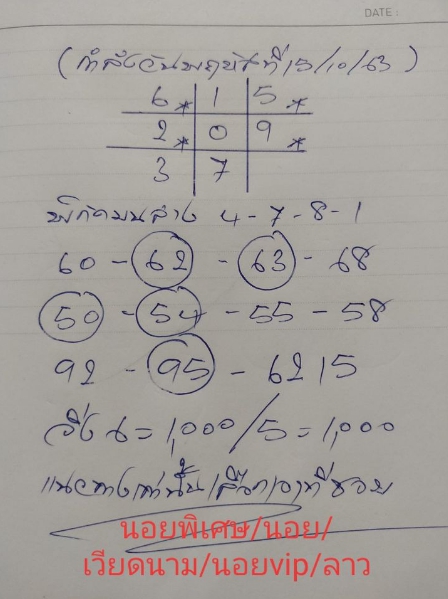 DATE :
(กำลังวันพฤหัสที่ 15/10/63)
6* 1 5*
2* 0 9*
3 7
พิกัดบนล่าง 4-7-8-1
60 - 62 - 63 - 68
50 - 54 - 55 - 58
92 - 95 - 6215
วิ่ง 6=1,000/5=1,000
แนวทางเท่านั้นเลือกเอาที่ชอบ
นอยพิเศษ/นอย/
เวียดนาม/นอยvip/ลาว